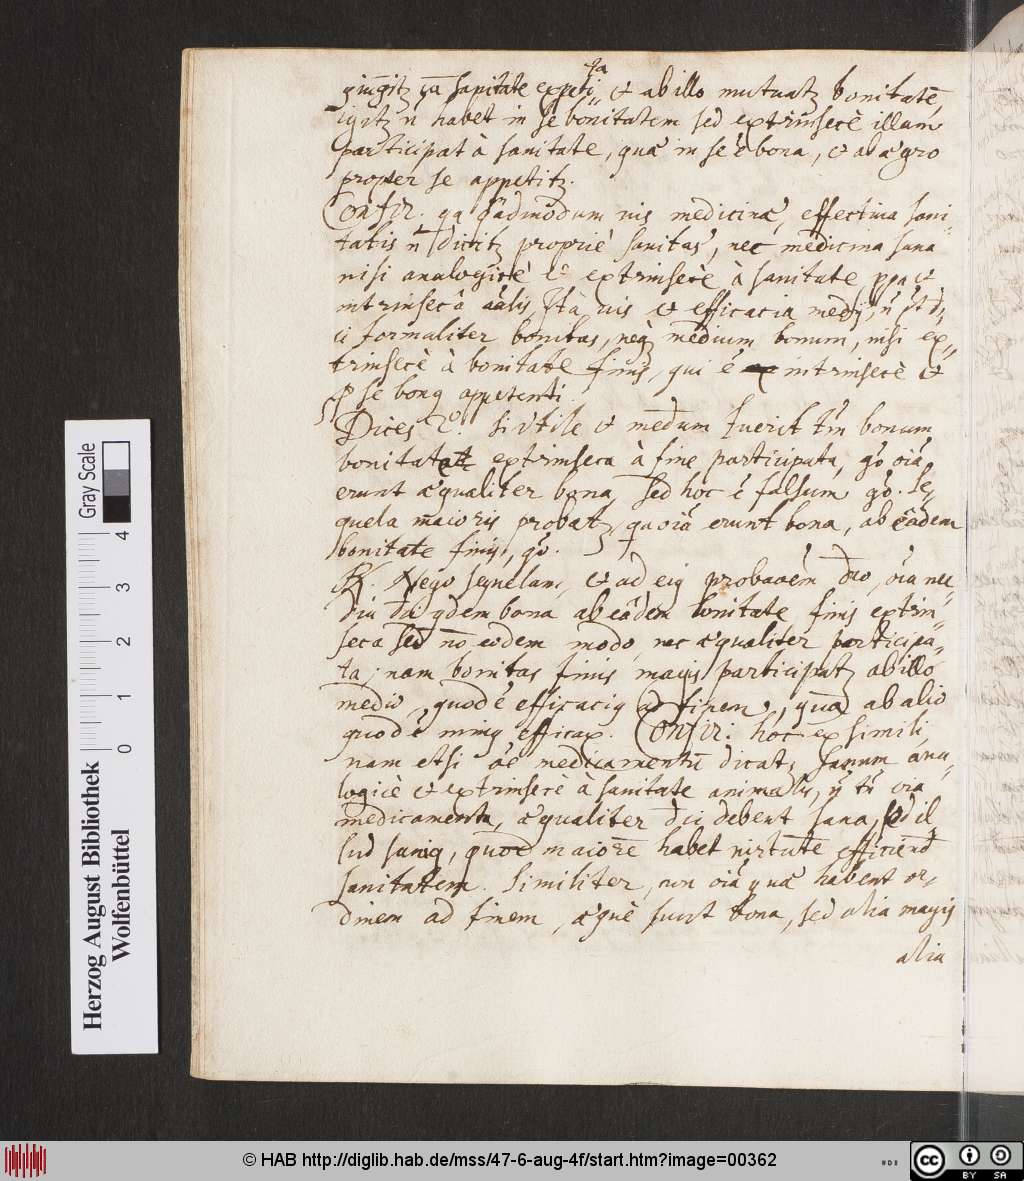 sanitate expeti, et ab illo mutuatz bonitatē,
igitz n̄ habet in se bonitatem sed extrinsecè illam
participat à sanitate, quæ in se ē bona, et ab ægro
propter se appetitz.
Confir. qa q̄admodum vis medicinæ, effectiva sani-
tatis n̄ dicitz propriè sanitas, nec medicina sana
nisi analogicè et extrinsecè à sanitate ppa et
intrinseca aālis, Ita vis et efficacia medij, n̄ pōt d-
ci formaliter bonitas, neqz medium bonum, nisi ex-
trinsecè à bonitate finis, qui ē intrinsecè et
p se bonq appetenti.
Dices 2º. Si utile et medium fuerit tm̄ bonum
bonitate extrinseca à fine participata, gº oīa
erunt æqualiter bona, sed hoc ē falsum gº. Se-
quela maioris probatz, qa oīa erunt bona, ab eādem
bonitate finis, gº.
R. Nego sequelam, et ad eiq probaōēm dico, oīa me-
dia qdem bona ab eādem bonitate finis extrin-
seca sed nō eodem modo, nec æqualiter participa-
ta; nam bonitas finis magis participatz ab illo
medio, quod ē efficaciq ad finem, quā ab alio
quod ē minq efficax. Confir: hoc ex simili,
nam etsi oē medicamentū dicatz sanum ana-
logicè et extrinsecè à sanitate animalis, n̄ tn̄ oīa
medicamenta, æqualiter dici debent sana, sed il
lud saniq, quod maiorē habet virtutē efficiend
sanitatem. Similiter, non oīa quæ habent or-
dinem ad finem, æquè sunt bona, sed alia magis
alia
Gray Scale
4
3
2
1
0
Herzog August Bibliothek
Wolfenbüttel
© HAB http://diglib.hab.de/mss/47-6-aug-4f/start.htm?image=00362
cc BY SA